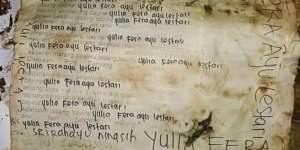 yulia Fera ayu lestari
yulia Fera ayu lestari
yulia Fera ayu lestari
yulia Fera ayu lestari
yulia Fera ayu lestari
yulia Fera ayu lestari
yulia Fera ayu lestari
yulia Fera ayu lestari
yulia Fera ayu lestari
yulia Fera ayu lestari
yulia Fera ayu lestari
yulia Fera ayu lestari
yulia Fera ayu lestari
yulia fera ayu lestari
sri rahayu ningsih
Yulia FERA
A Ayu Lestari